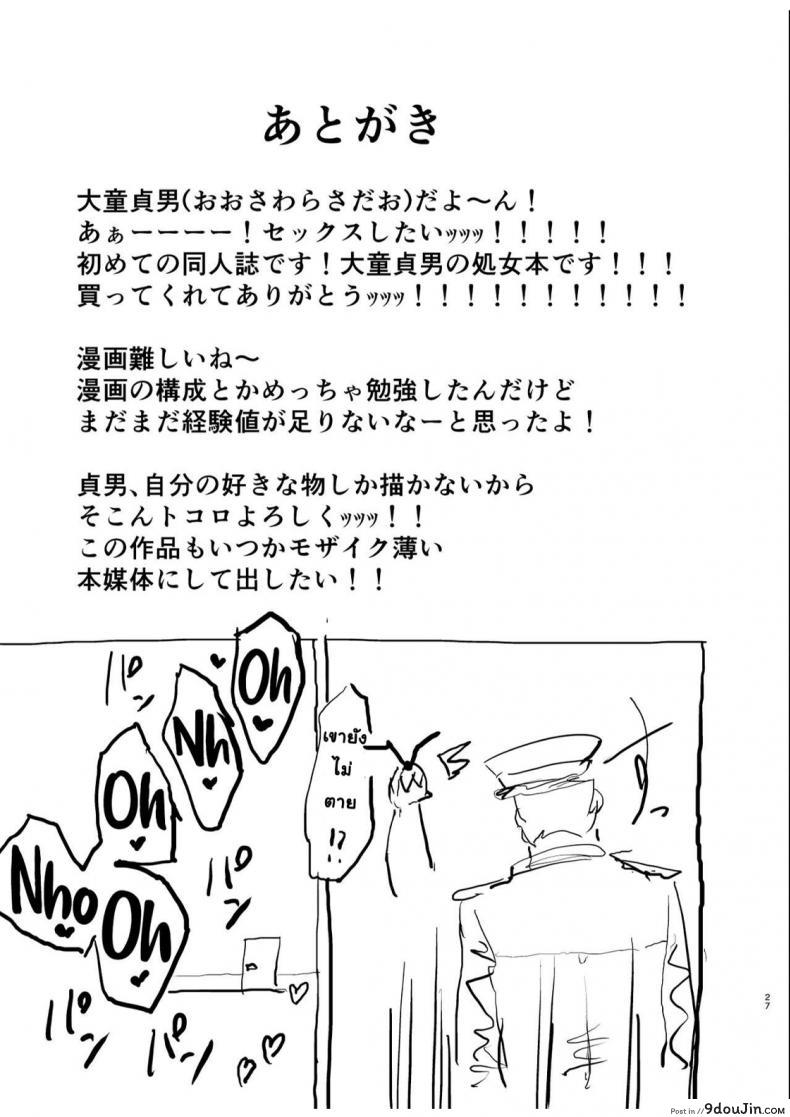 あとがき
大童貞男(おおさわらさだお)だよ～ん！
あぁーーーー！セックスしたいｯｯｯ！！！！！
初めての同人誌です！大童貞男の処女本です！！！
買ってくれてありがとうｯｯｯ！！！！！！！！！！！！
漫画難しいね～
漫画の構成とかめっちゃ勉強したんだけど
まだまだ経験値が足りないなーと思ったよ！
貞男、自分の好きな物しか描かないから
そこんトコロよろしくｯｯｯ！！
この作品もいつかモザイク薄い
本媒体にして出したい！！
Oh
Nh
Oh
Nho
Oh
パン
パン
パン
パン
パン
เขายัง
ไม่
ตาย
!?
27
Post in // 9douJin.com